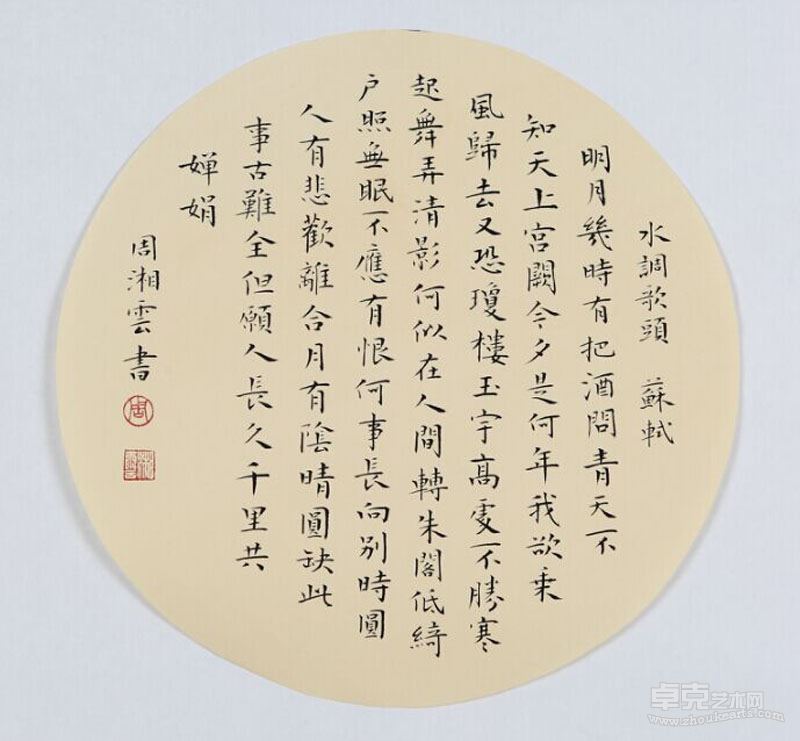 水調歌頭　蘇軾
明月幾時有把酒問青天不
知天上宮闕今夕是何年我欲乗
風歸去又恐瓊樓玉宇高處不勝寒
起舞弄清影何似在人間轉朱閣低綺
户照無眠不應有恨何事長向别時圓
人有悲歡離合月有陰晴圓缺此
事古難全但願人長久千里共
嬋娟
周湘雲書
周
卓克艺术网
www.zhoukearts.com